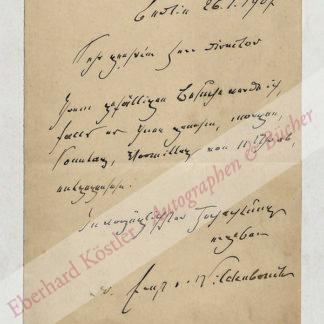 Berlin 26.1.1907
Sehr geehrter Herr Director
Ihrem gefälligen Besuche werde ich,
falls es Ihnen genehm, morgen,
Sonntag, Vormittag von 11 Uhr ab,
entgegensehen.
In vorzüglichster Hochachtung
ergeben
Ernst v. Wildenbruch
Eberhard Köstler Autographen & Bücher